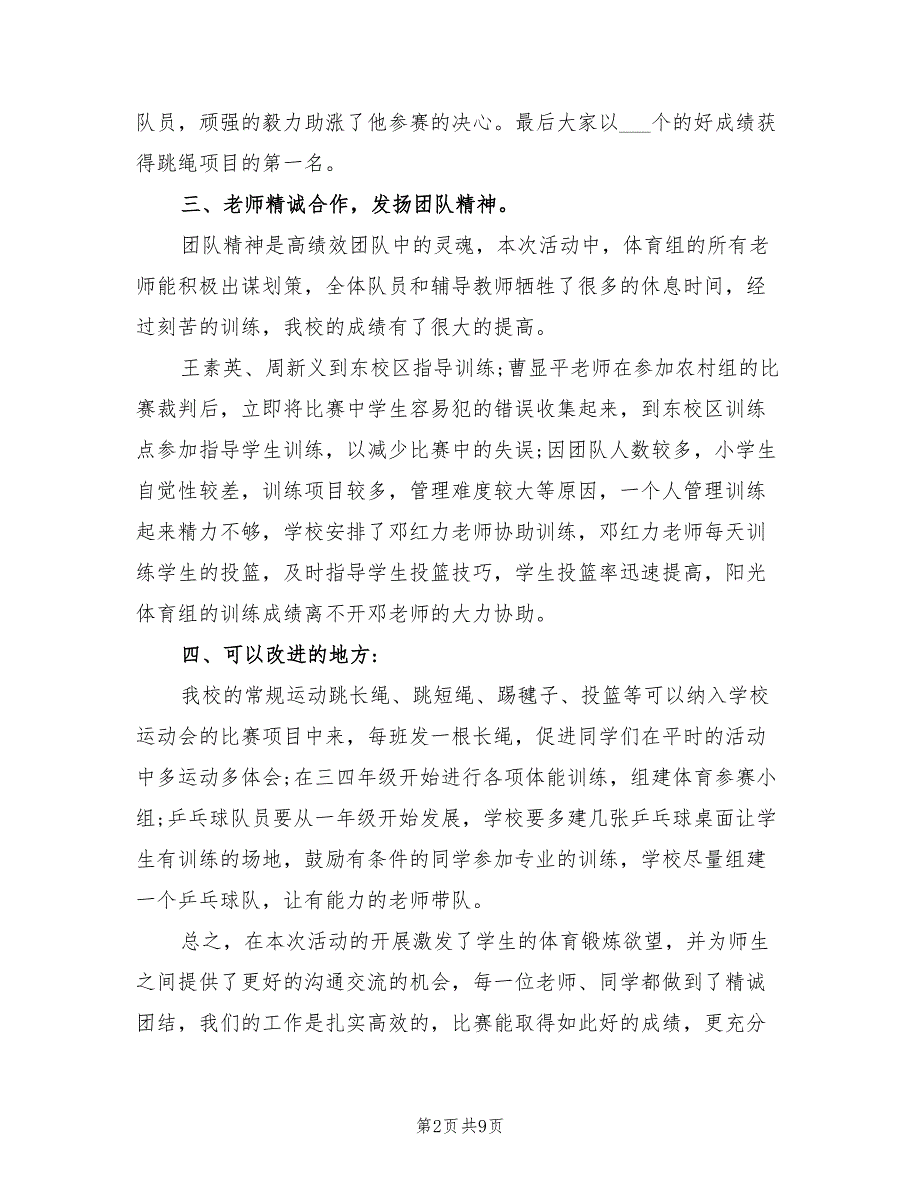 队员，顽强的毅力助涨了他参赛的决心。最后大家以___个的好成绩获
得跳绳项目的第一名。
三、老师精诚合作，发扬团队精神。
团队精神是高绩效团队中的灵魂，本次活动中，体育组的所有老
师能积极出谋划策，全体队员和辅导教师牺牲了很多的休息时间，经
过刻苦的训练，我校的成绩有了很大的提高。
王素英、周新义到东校区指导训练;曹显平老师在参加农村组的比
赛裁判后，立即将比赛中学生容易犯的错误收集起来，到东校区训练
点参加指导学生训练，以减少比赛中的失误;因团队人数较多，小学生
自觉性较差，训练项目较多，管理难度较大等原因，一个人管理训练
起来精力不够，学校安排了邓红力老师协助训练，邓红力老师每天训
练学生的投篮，及时指导学生投篮技巧，学生投篮率迅速提高，阳光
体育组的训练成绩离不开邓老师的大力协助。
四、可以改进的地方：
我校的常规运动跳长绳、跳短绳、踢毽子、投篮等可以纳入学校
运动会的比赛项目中来，每班发一根长绳，促进同学们在平时的活动
中多运动多体会;在三四年级开始进行各项体能训练，组建体育参赛小
组;乒乓球队员要从一年级开始发展，学校要多建几张乒乓球桌面让学
生有训练的场地，鼓励有条件的同学参加专业的训练，学校尽量组建
一个乒乓球队，让有能力的老师带队。
总之，在本次活动的开展激发了学生的体育锻炼欲望，并为师生
之间提供了更好的沟通交流的机会，每一位老师、同学都做到了精诚
团结，我们的工作是扎实高效的，比赛能取得如此好的成绩，更充分
第2页 共9页